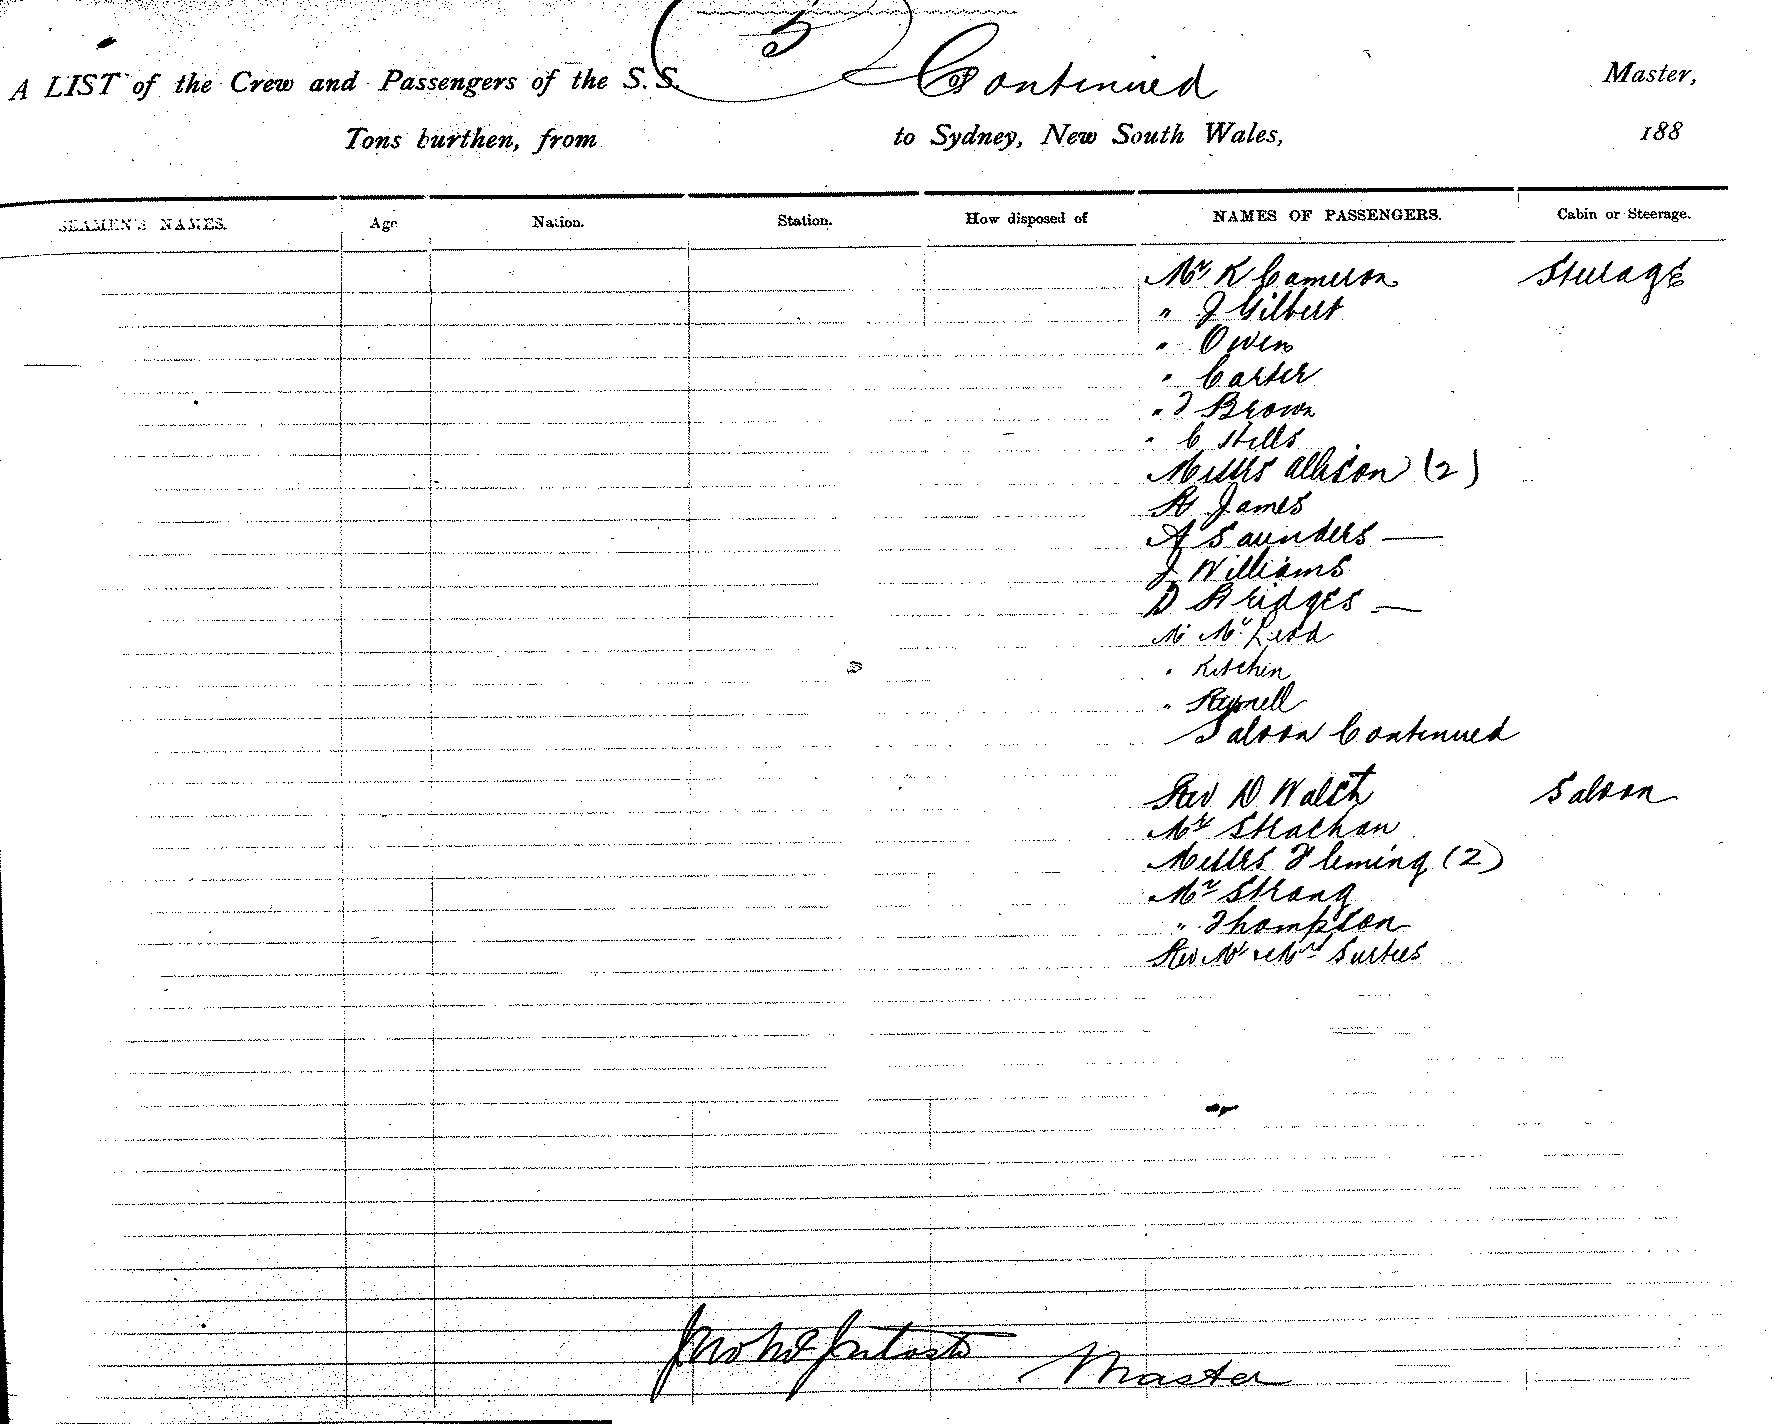 5
A LIST of the Crew and Passengers of the S.S. of Continued Master,
Tons burthen, from to Sydney, New South Wales, 188
SEAMEN'S NAMES. Age Nation. Station. How disposed of NAMES OF PASSENGERS. Cabin or Steerage.
Mr K Cameron Steerage
" J Gilbert
" Owen
" Carter
" T Brown
" C Hells
Messrs Allison (2)
R James
A Saunders —
J Williams
D Bridges —
Mr McLeod
" Kitchen
" Reynell
Saloon Continued
Rev D Walsh Saloon
Mr Strachan
Messrs Fleming (2)
Mr Strong
" Thompson
Rev Mr & Mrs Surtees
Master